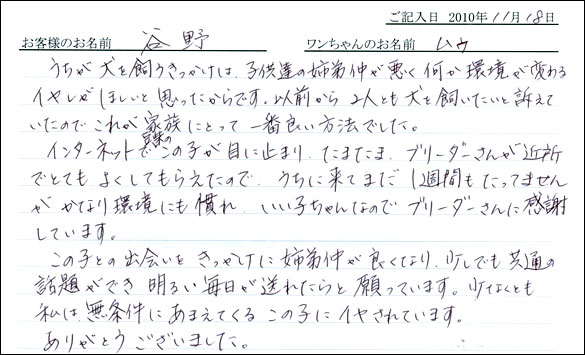 ご記入日 2010年11月18日
お客様のお名前 谷野 ワンちゃんのお名前 ムウ
うちが犬を飼うきっかけは、子供達の姉弟仲が悪く何か環境が変わる
イヤシがほしいと思ったからです。以前から2人とも犬を飼いたいと訴えて
いたのでこれが家族にとって一番良い方法でした。
インターネットで この子が目に止まり、たまたま、ブリーダーさんが近所
でとてもよくしてもらえたので、うちに来てまだ1週間もたってません
が かなり環境にも慣れ、いい子ちゃんなのでブリーダーさんに感謝
しています。
この子との出会いをきっかけに姉弟仲が良くなり、少しでも共通の
話題ができ明るい毎日が送れたらと願っています。少なくとも
私は、無条件にあまえてくるこの子にイヤされています。
ありがとうございました。